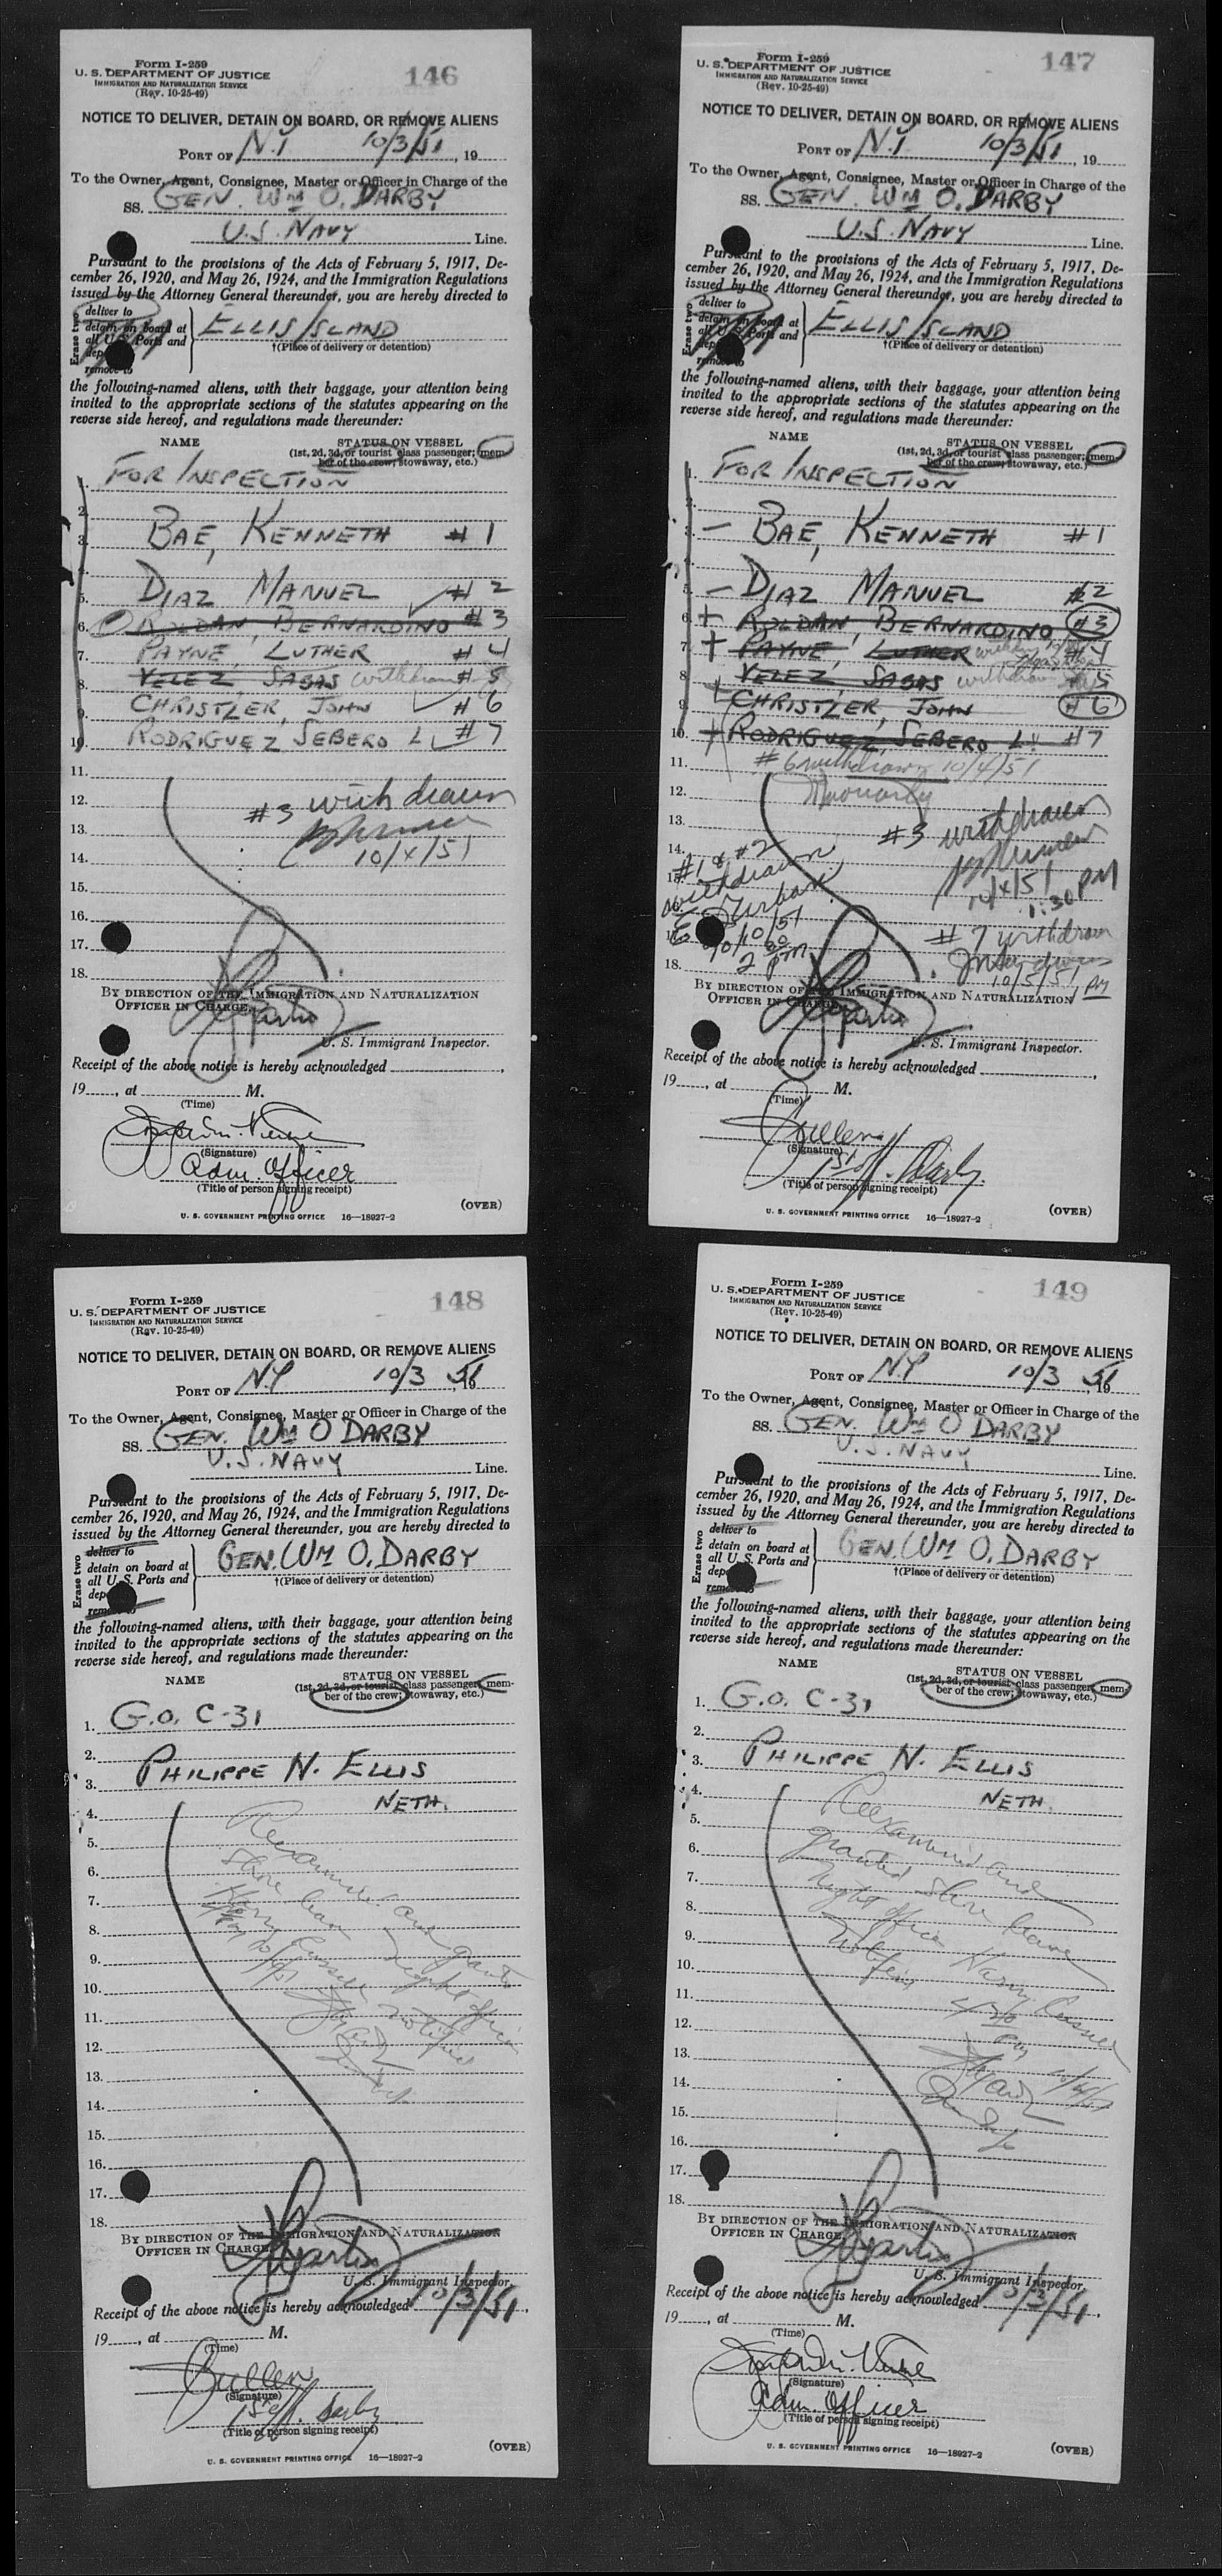 Form I-259
U. S. DEPARTMENT OF JUSTICE
IMMIGRATION AND NATURALIZATION SERVICE
(Rev. 10-25-49)
146
NOTICE TO DELIVER, DETAIN ON BOARD, OR REMOVE ALIENS
PORT OF N.Y 10/3/51, 19
To the Owner, Agent, Consignee, Master or Officer in Charge of the
SS. GEN. WM O. DARBY
U.S. NAVY Line.
Pursuant to the provisions of the Acts of February 5, 1917, De-
cember 26, 1920, and May 26, 1924, and the Immigration Regulations
issued by the Attorney General thereunder, you are hereby directed to
Erase two
deliver to
detain on board at
all U. S. Ports and
dep
remove to
ELLIS ISLAND
†(Place of delivery or detention)
the following-named aliens, with their baggage, your attention being
invited to the appropriate sections of the statutes appearing on the
reverse side hereof, and regulations made thereunder:
NAME STATUS ON VESSEL
(1st, 2d, 3d, or tourist class passenger; mem-
ber of the crew; stowaway, etc.)
1. FOR INSPECTION
2.
3. BAE, KENNETH #1
4.
5. DIAZ MANUEL #2
6. ROLDAN, BERNARDINO #3
7. PAYNE, LUTHER #4
8. VELEZ, SABAS withdrawn #5
9. CHRISTLER, JOHN #6
10. RODRIGUEZ SEBERO L #7
11.
12. #3 withdrawn
13.
14. 10/4/51
15.
16.
17.
18.
BY DIRECTION OF THE IMMIGRATION AND NATURALIZATION
OFFICER IN CHARGE,
U. S. Immigrant Inspector.
Receipt of the above notice is hereby acknowledged
19, at M.
(Time)
(Signature)
Adm. Officer
(Title of person signing receipt)
(OVER)
U. S. GOVERNMENT PRINTING OFFICE 16—18927-2
Form I-259
U. S. DEPARTMENT OF JUSTICE
IMMIGRATION AND NATURALIZATION SERVICE
(Rev. 10-25-49)
147
NOTICE TO DELIVER, DETAIN ON BOARD, OR REMOVE ALIENS
PORT OF N.Y 10/3/51, 19
To the Owner, Agent, Consignee, Master or Officer in Charge of the
SS. GEN. WM O. DARBY
U.S. NAVY Line.
Pursuant to the provisions of the Acts of February 5, 1917, De-
cember 26, 1920, and May 26, 1924, and the Immigration Regulations
issued by the Attorney General thereunder, you are hereby directed to
Erase two
deliver to
detain on board at
all U. S. Ports and
dep
remove to
ELLIS ISLAND
†(Place of delivery or detention)
the following-named aliens, with their baggage, your attention being
invited to the appropriate sections of the statutes appearing on the
reverse side hereof, and regulations made thereunder:
NAME STATUS ON VESSEL
(1st, 2d, 3d, or tourist class passenger; mem-
ber of the crew; stowaway, etc.)
1. FOR INSPECTION
2.
3. – BAE, KENNETH #1
4.
5. – DIAZ MANUEL #2
6. + ROLDAN, BERNARDINO #3
7. + PAYNE, LUTHER #4
8. VELEZ, SABAS withdrawn #5
9. + CHRISTLER, JOHN #6
10. + RODRIGUEZ, SEBERO L. #7
11. #6 withdrawn 10/4/51
12.
13. #3 withdrawn
14. 10/4/51
1:30 PM
#1 & #2
withdrawn
E Urban
10/10/51
2 00 pm
#7 withdrawn
10/5/51 PM
18.
BY DIRECTION OF THE IMMIGRATION AND NATURALIZATION
OFFICER IN CHARGE,
U. S. Immigrant Inspector.
Receipt of the above notice is hereby acknowledged
19, at M.
(Time)
(Signature)
(Title of person signing receipt)
(OVER)
U. S. GOVERNMENT PRINTING OFFICE 16—18927-2
Form I-259
U. S. DEPARTMENT OF JUSTICE
IMMIGRATION AND NATURALIZATION SERVICE
(Rev. 10-25-49)
148
NOTICE TO DELIVER, DETAIN ON BOARD, OR REMOVE ALIENS
PORT OF N.Y 10/3, 19 51
To the Owner, Agent, Consignee, Master or Officer in Charge of the
SS. GEN. WM O DARBY
U.S. NAVY Line.
Pursuant to the provisions of the Acts of February 5, 1917, De-
cember 26, 1920, and May 26, 1924, and the Immigration Regulations
issued by the Attorney General thereunder, you are hereby directed to
Erase two
deliver to
detain on board at
all U. S. Ports and
dep
remove to
GEN. WM O. DARBY
†(Place of delivery or detention)
the following-named aliens, with their baggage, your attention being
invited to the appropriate sections of the statutes appearing on the
reverse side hereof, and regulations made thereunder:
NAME STATUS ON VESSEL
(1st, 2d, 3d, or tourist class passenger; mem-
ber of the crew; stowaway, etc.)
1. G.O. C-31
2.
3. PHILIPPE N. ELLIS
4. NETH.
5. Reexamined and granted
6. shore leave Night officer
7. Harry notified
8.
9.
10.
11.
12.
13.
14.
15.
16.
17.
18.
BY DIRECTION OF THE IMMIGRATION AND NATURALIZATION
OFFICER IN CHARGE,
U. S. Immigrant Inspector.
Receipt of the above notice is hereby acknowledged 10/3/51,
19, at M.
(Time)
(Signature)
(Title of person signing receipt)
(OVER)
U. S. GOVERNMENT PRINTING OFFICE 16—18927-2
Form I-259
U. S. DEPARTMENT OF JUSTICE
IMMIGRATION AND NATURALIZATION SERVICE
(Rev. 10-25-49)
149
NOTICE TO DELIVER, DETAIN ON BOARD, OR REMOVE ALIENS
PORT OF N.Y 10/3, 19 51
To the Owner, Agent, Consignee, Master or Officer in Charge of the
SS. GEN. WM O DARBY
U.S. NAVY Line.
Pursuant to the provisions of the Acts of February 5, 1917, De-
cember 26, 1920, and May 26, 1924, and the Immigration Regulations
issued by the Attorney General thereunder, you are hereby directed to
Erase two
deliver to
detain on board at
all U. S. Ports and
dep
remove to
GEN. WM O. DARBY
†(Place of delivery or detention)
the following-named aliens, with their baggage, your attention being
invited to the appropriate sections of the statutes appearing on the
reverse side hereof, and regulations made thereunder:
NAME STATUS ON VESSEL
(1st, 2d, 3d, or tourist class passenger; mem-
ber of the crew; stowaway, etc.)
1. G.O. C-31
2.
3. PHILIPPE N. ELLIS
4. NETH.
5. Reexamined and
6. granted shore leave
7. Night officer Harry
8. notified
9.
10.
11.
12.
13.
14.
15.
16.
17.
18.
BY DIRECTION OF THE IMMIGRATION AND NATURALIZATION
OFFICER IN CHARGE,
U. S. Immigrant Inspector.
Receipt of the above notice is hereby acknowledged 10/3/51,
19, at M.
(Time)
(Signature)
Adm. Officer
(Title of person signing receipt)
(OVER)
U. S. GOVERNMENT PRINTING OFFICE 16—18927-2